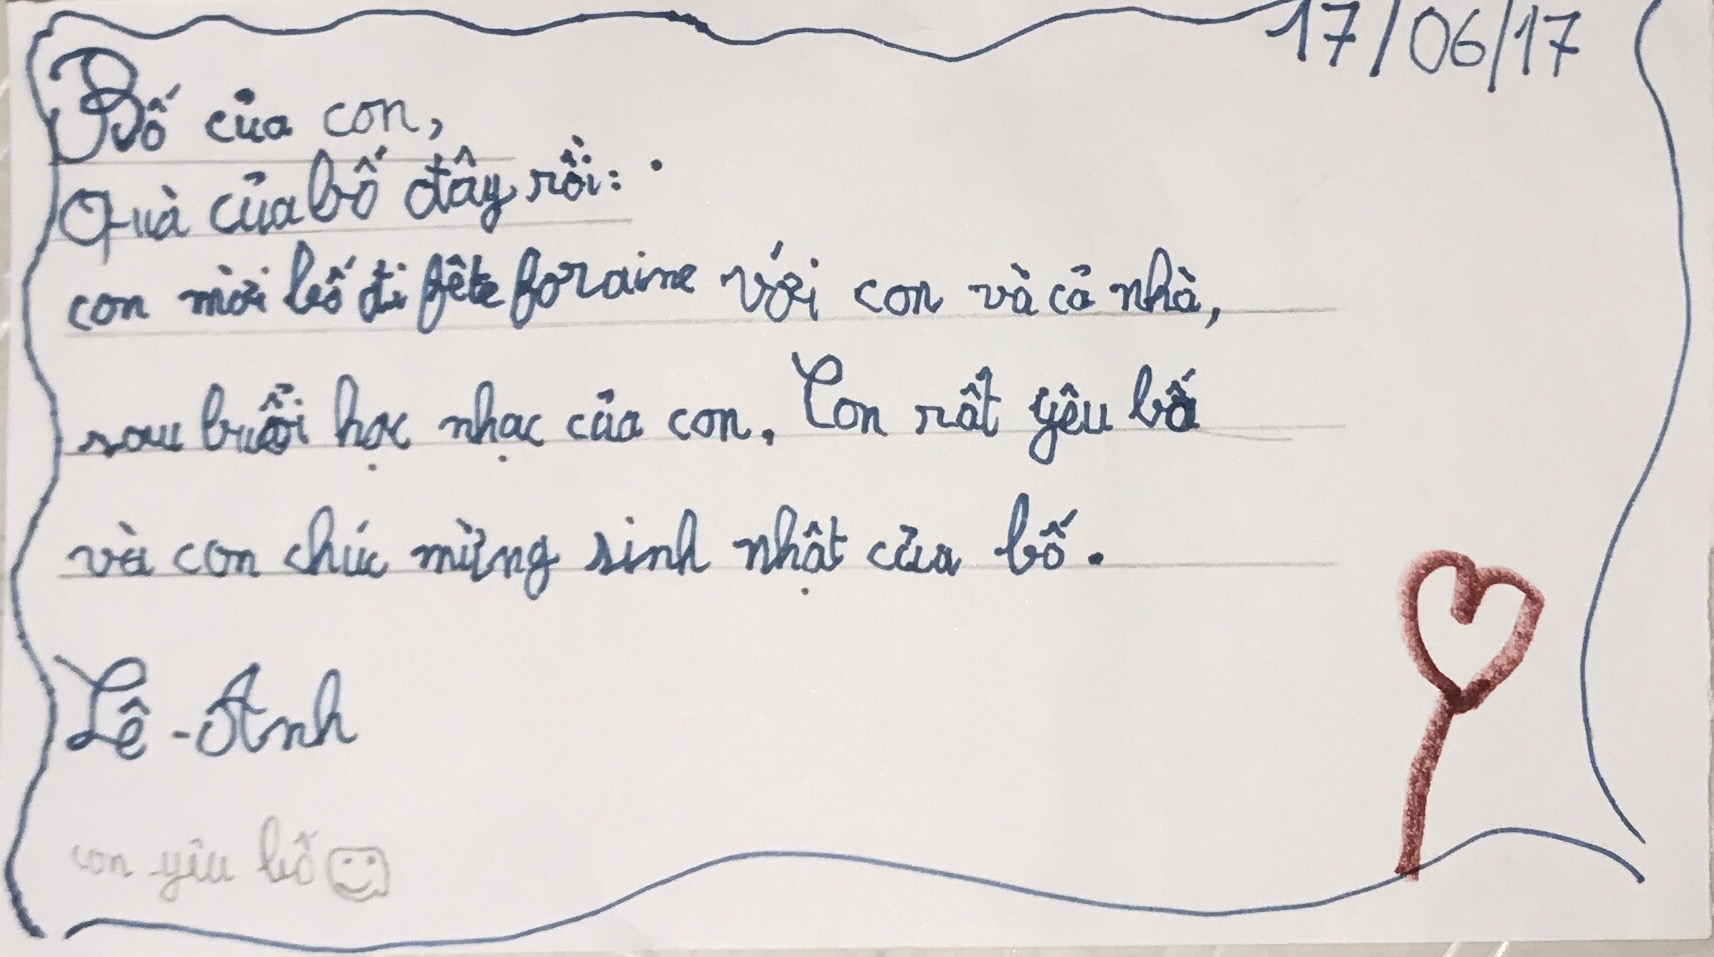 17/06/17
Bố của con,
Quà của bố đây rồi:
con mời bố đi fête foraine với con và cả nhà,
sau buổi học nhạc của con. Con rất yêu bố
và con chúc mừng sinh nhật của bố.
Lê-Anh
con yêu bố